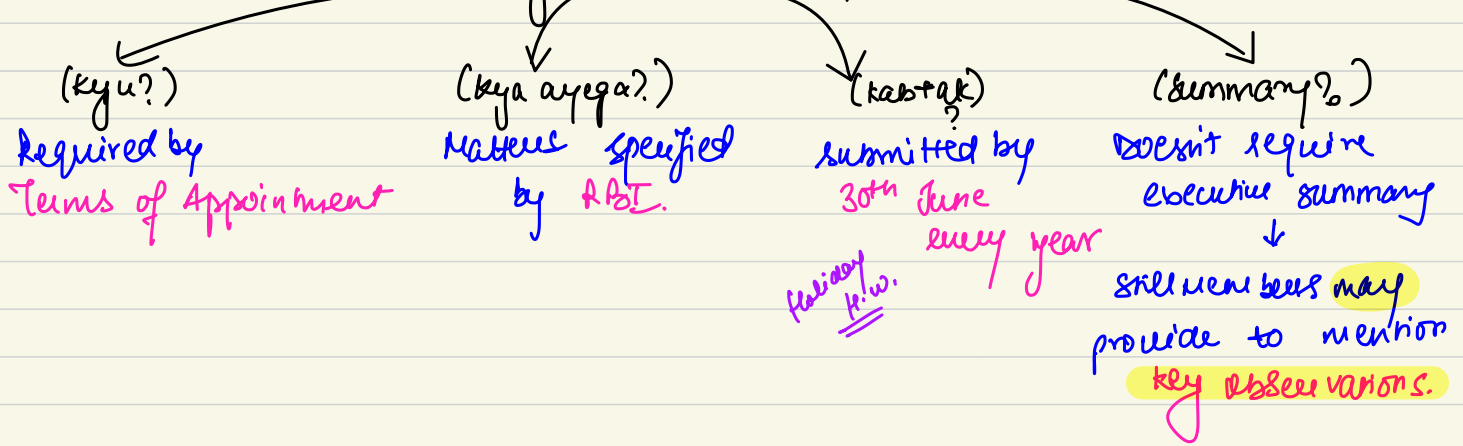 (kyu?)
Required by
Terms of Appointment
(kya ayega?)
Matters specified
by RBI.
(kabtak)
?
submitted by
30th June
every year
Holiday
H.W.
(summary?)
Doesn't require
executive summary
↓
still members may
provide to mention
key observations.